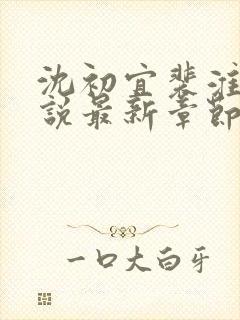 沈初宜裴淮
說最新章節
一口大白牙